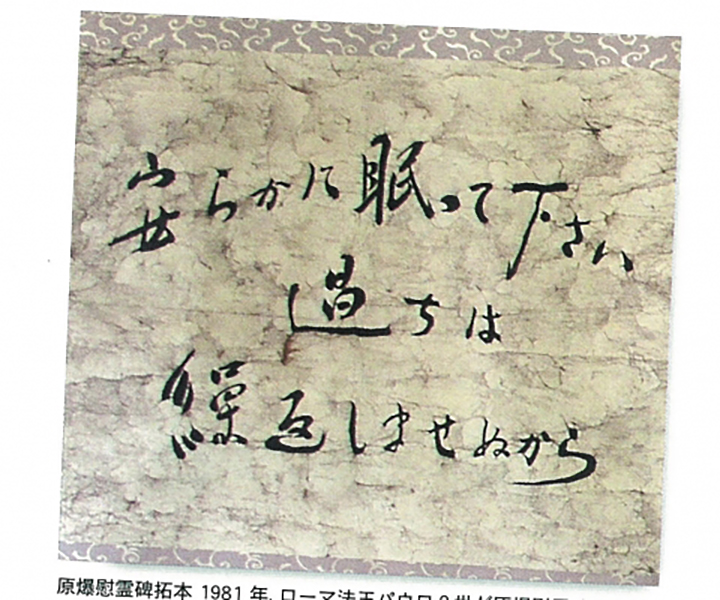 安らかに眠って下さい
過ちは
繰返しませぬから
原爆慰霊碑拓本 1981年、ローマ法王パウロ2世が原爆慰霊